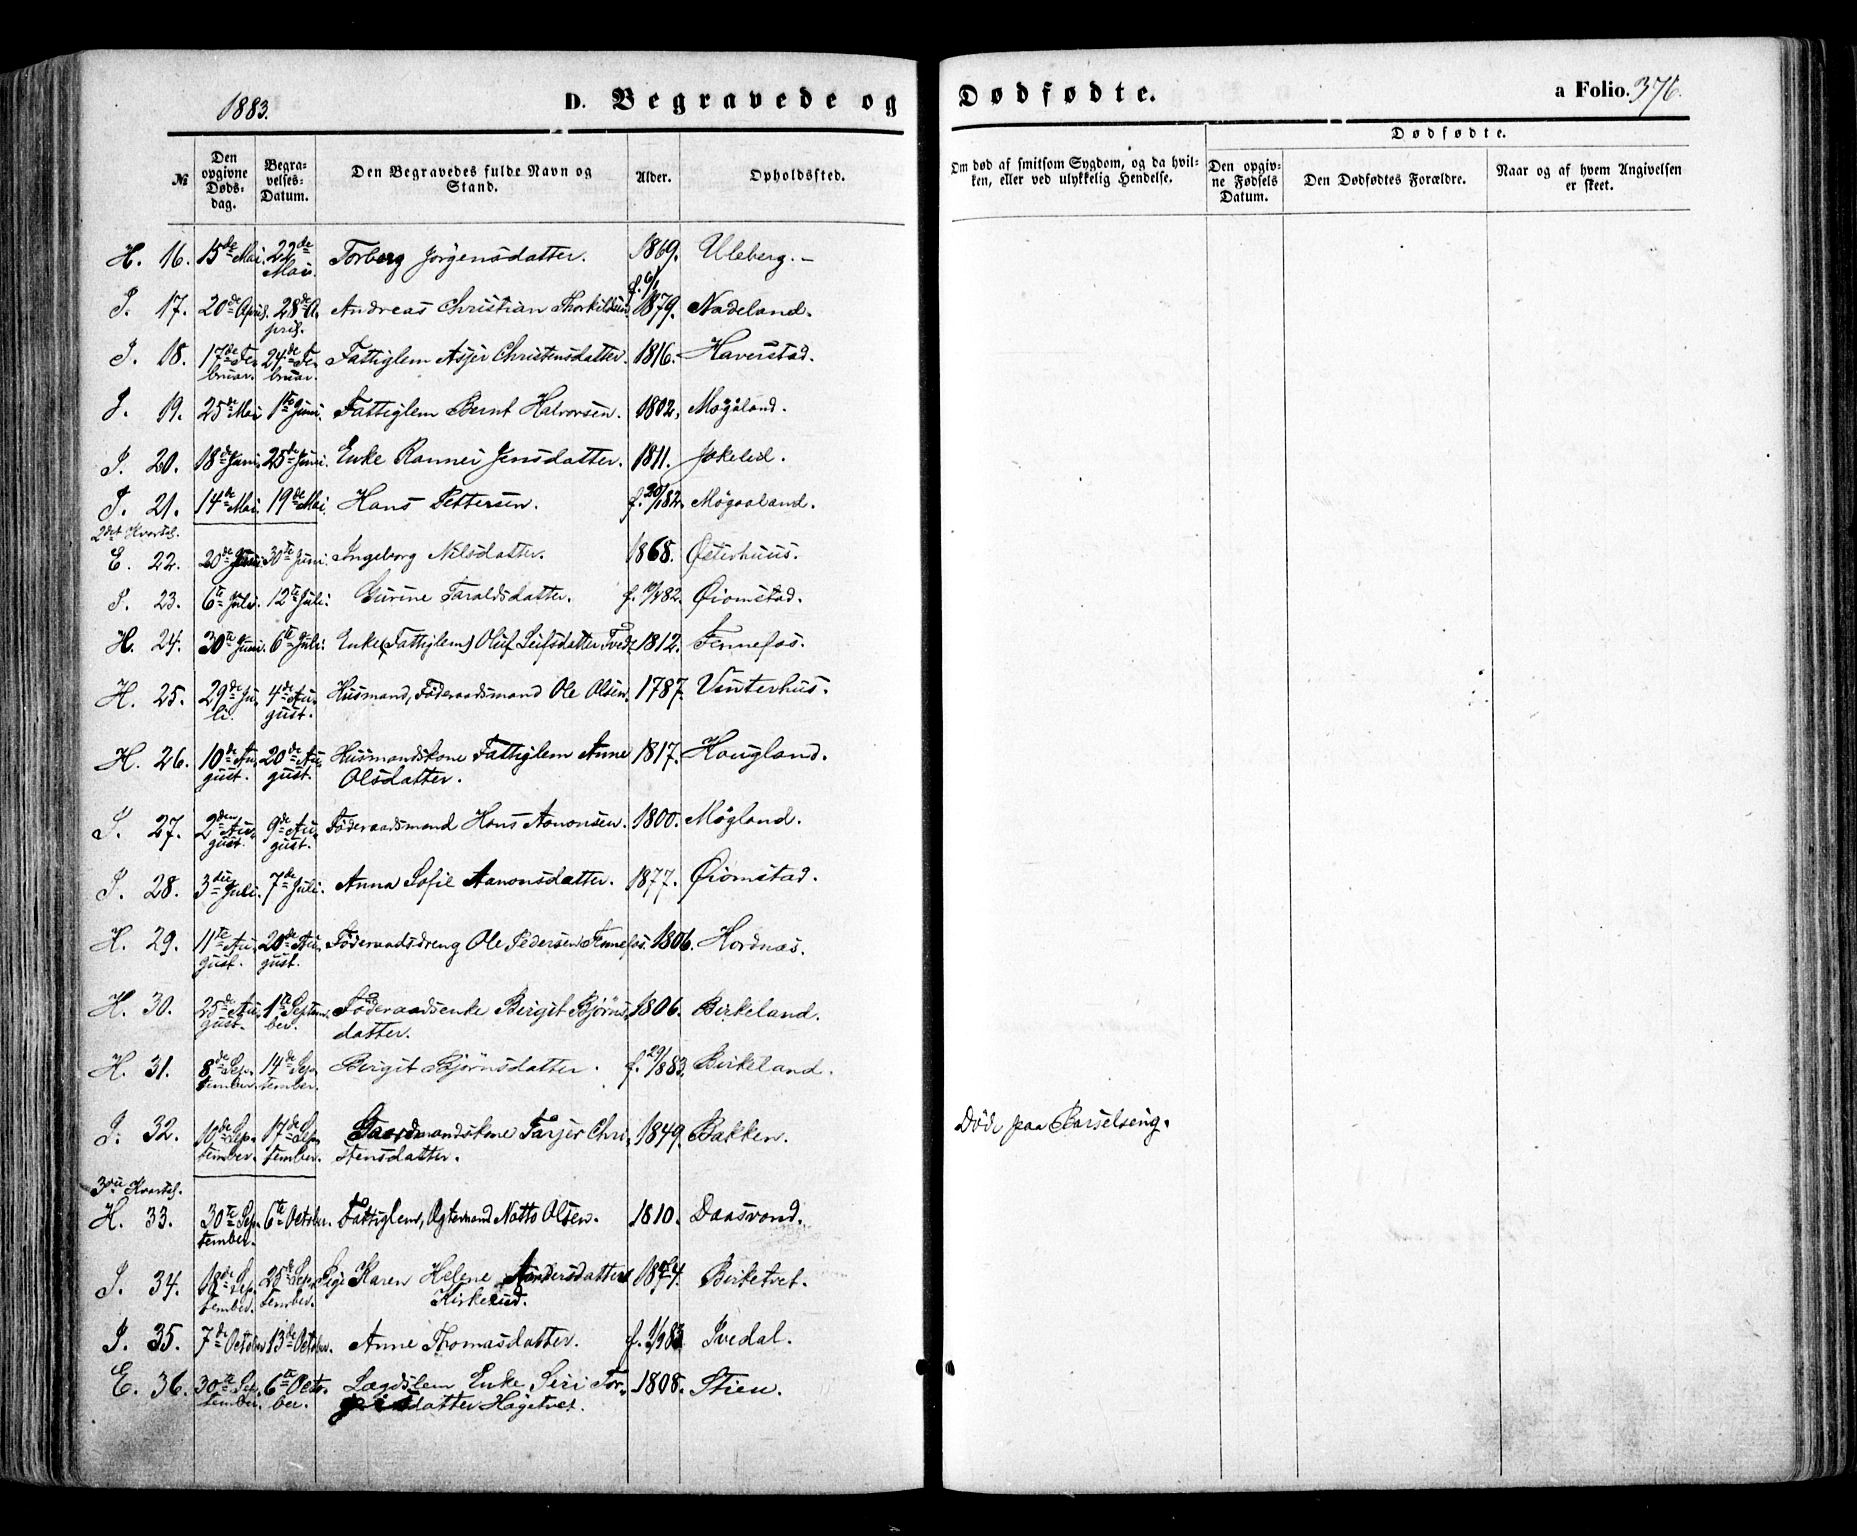 1883.
D. Begravede og Dødfødte.
a Folio. 376.
№
Den opgivne Døds-dag.
Begra-velses-Datum.
Den Begravedes fulde Navn og Stand.
Alder.
Opholdssted.
Om død af smitsom Sygdom, og da hvil-ken, eller ved ulykkelig Hendelse.
Dødfødte.
Den opgiv-ne Fødsels Datum.
Den Dødfødtes Forældre.
Naar og af hvem Angivelsen er skeet.
H. 16. 15de Mai. 22de Mai. Torberg Jørgensdatter. 1869. Uleberg.
I. 17. 20de April. 28de April. Andreas Christian Thorkildsen f. 6/1 1879. Nadeland.
I. 18. 17de Februar. 24de Februar. Fattiglem Asjer Christensdatter. 1816. Haverstad.
I. 19. 25de Mai 1ste Juni. Fattiglem Bernt Halvorsen. 1802. Møgaland.
I. 20. 18de Juni. 25de Juni. Enke Rannei Jensdatter. 1811. Jokeled.
I. 21. 14de Mai. 19de Mai. Hans Pettersen. f. 20/1 82. Møgaaland.
2det Kvartal.
E. 22. 20de Juni. 30te Juni. Ingeborg Nilsdatter. 1868. Østerhuus.
I. 23. 6te Juli. 12te Juli. Gurine Taraldsdatter. Øiomstad.
H. 24. 30te Juni. 6te Juli. Enke (Fattiglem) Oluf Leifsdatter Tved 1812. Fennefos.
H. 25. 29de Juli. 4de August. Husmand, Føderaadsmand Ole Olsen. 1787. Vinterhus.
H. 26. 10de August. 20de August. Husmandskone Fattiglem Anne Olsdatter. 1817. Hougland.
I. 27. 2den August. 9de August. Føderaadsmand Hans Aanonsen. 1800. Møgland.
I. 28. 3die Juli. 7de Juli. Anna Sofie Aanonsdatter. 1877. Øiomstad.
H. 29. 11te August. 20de August. Føderaadsdreng Ole Pedersen Fennefos. 1806. Hordnæs.
H. 30. 25de August. 1ste September. Føderaadsenke Birgit Bjørns-datter. 1806. Birkeland.
H. 31. 8de September. 14de September. Birgit Bjørnsdatter. f. 29/8 83. Birkeland.
I. 32. 10de September. 17de September. Gaardmandskone Tarjer Chri-stensdatter. 1849. Bakken. Døde paa Barselseng.
3die Kvartal.
H. 33. 30te September. 6te October. Fattiglem, Ægtemand Notto Olsen. 1810. Daasvand.
I. 34. 18de September. 25de September. Pige Karen Helene Andersdatter Kirkerud. 1874. Birketvet.
I. 35. 7de October 13de October. Anne Thomasdatter. Ivedal.
E. 36. 30te September. 6te October. Lægdslem Enke, Siri Tor-grisdatter Høgetvet. 1808. Stien.